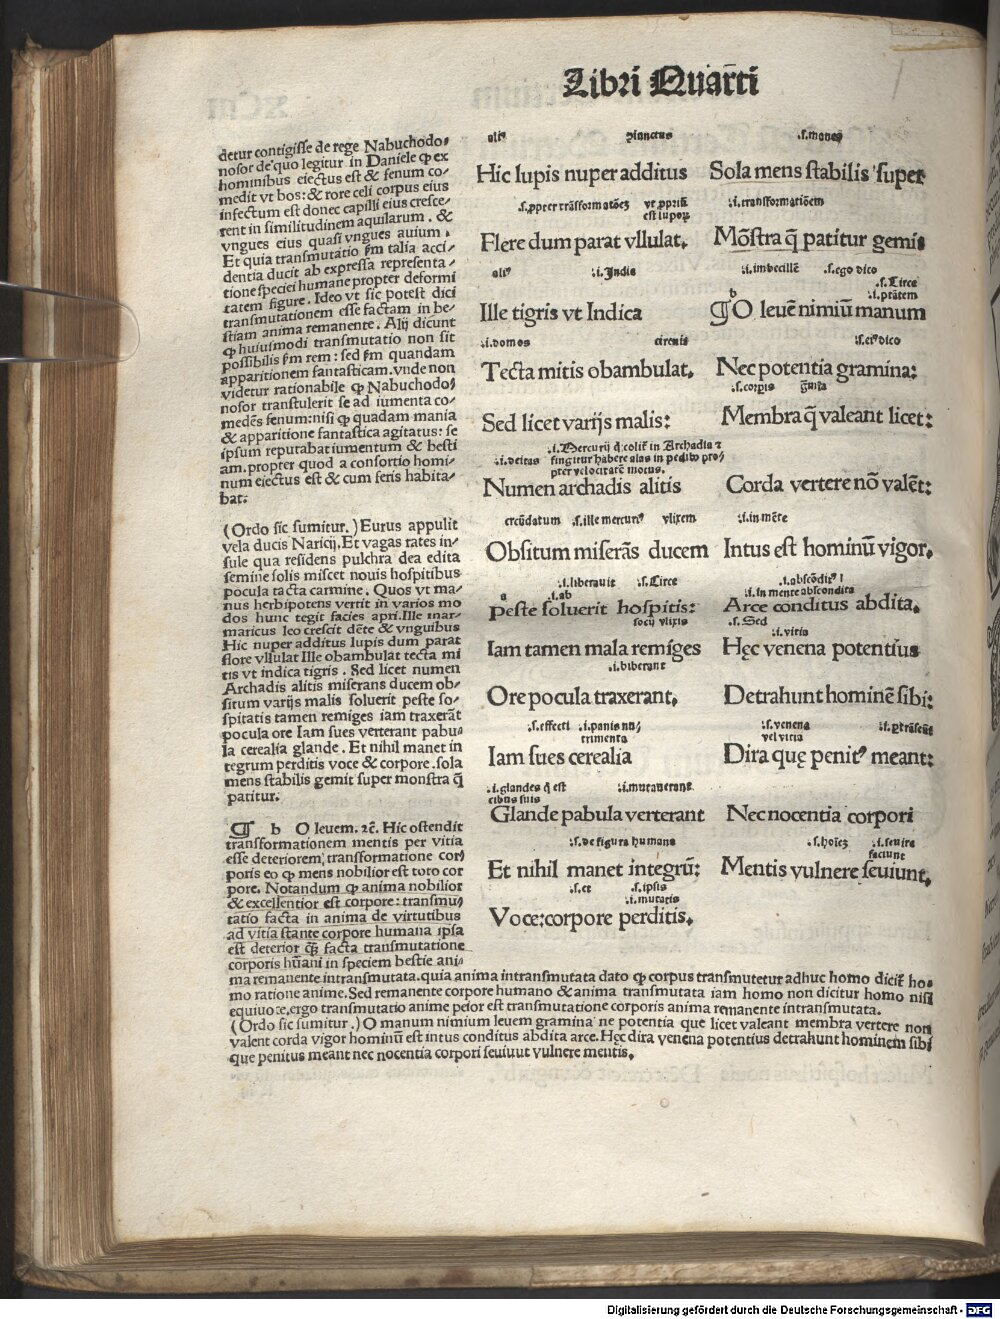 Libri Quarti
detur contigisse de rege Nabuchodo⸗
nosor de quo legitur in Daniele ꝙ ex
hominibus eiectus est & fenum co⸗
medit vt bos: & rore celi corpus eius
infectum est donec capilli eius cresce⸗
rent in similitudinem aquilarum . &
vngues eius quasi vngues auium .
Et quia transmutatio ẜm talia acci⸗
dentia ducit ab expressa representa⸗
tione speciei humane propter deformi
tatem figure. Ideo vt sic potest dici
transmutationem esse factam in be⸗
stiam anima remanente. Alij dicunt
ꝙ huiusmodi transmutatio non sit
possibilis ẜm rem: sed ẜm quandam
apparitionem fantasticam. vnde non
videtur rationabile ꝙ Nabuchodo⸗
nosor transtulerit se ad iumenta co⸗
medēs fenum: nisi ꝙ quadam mania
& apparitione fantastica agitatus: se
ipsum reputabat iumentum & besti
am. propter quod a consortio homi⸗
num eiectus est & cum feris habita⸗
bat:
(Ordo sic sumitur.) Eurus appulit
vela ducis Naricij. Et vagas rates in⸗
sule qua residens pulchra dea edita
semine solis miscet nouis hospitibus
pocula tacta carmine. Quos vt ma⸗
nus herbipotens vertit in varios mo
dos hunc tegit facies apri. Ille mar⸗
maricus leo crescit dēte & vnguibus
Hic nuper additus lupis dum parat
flore vllulat Ille obambulat tecta mi
tis vt indica tigris . Sed licet numen
Archadis alitis miserans ducem ob⸗
situm varijs malis soluerit peste so⸗
spitatis tamen remiges iam traxerāt
pocula ore Iam sues verterant pabu⸗
la cerealia glande . Et nihil manet in
tegrum perditis voce & corpore. sola
mens stabilis gemit super monstra q̄
patitur.
¶ b O leuem. ⁊c̄. Hic ostendit
transformationem mentis per vitia
esse deteriorem transformatione cor⸗
poris eo ꝙ mens nobilior est toto cor
pore. Notandum ꝙ anima nobilior
& excellentior est corpore: transmu⸗
tatio facta in anima de virtutibus
ad vitia stante corpore humana ipsa
est deterior q̄ȝ facta transmutatione
corporis hūani in speciem bestie ani⸗
ma remanente intransmutata. quia anima intransmutata dato ꝙ corpus transmutetur adhuc homo dicit̄ ho⸗
mo ratione anime. Sed remanente corpore humano & anima transmutata iam homo non dicitur homo nisi
equiuoce. ergo transmutatio anime peior est transmutatione corporis anima remanente intransmutata.
(Ordo sic sumitur.) O manum nimium leuem gramina ne potentia que licet valeant membra vertere non
valent corda vigor hominū est intus conditus abdita arce. Hęc dira venena potentius detrahunt hominem sibi
que penitus meant nec nocentia corpori seuiuut vulnere mentis.
aliꝰ planctus
Hic lupis nuper additus
.s. ꝓpter trāsformatōeȝ vt ꝓpriū
est lupoꝝ
Flere dum parat vllulat.
aliꝰ .i. Indie
Ille tigris vt Indica
.i. domos circuit
Tecta mitis obambulat.
Sed licet varijs malis:
.i. Mercurij q̄ colit̄ in Archadia ⁊
.i. deitas fingitur habere alas in pedibꝰ pro⸗
pter velocitatē motus.
Numen archadis alitis
circūdatum .s. ille mercuriꝰ vlixem
Obsitum miserās ducem
.i. liberauit .s. Circe
a .i. ab
Peste soluerit hospitis:
socij vlixis
Iam tamen mala remiges
.i. biberant
Ore pocula traxerant.
.s. effecti .i. panis nu⸗
trimenta
Iam sues cerealia
.i. glandes q̄ est .i. mutauerant
cibus suis
Glande pabula verterant
.s. de figura humana
Et nihil manet integrū:
.s. et .s. ipsis
.i. mutatis
Voce: corpore perditis.
.s. manes
Sola mens stabilis super
.i. transformationem
Mōstra q̄ patitur gemit
.i. imbecillē .s. ego dico
.s. Circe
b .i. ptātem
¶ O leuē nimiū manum
.s. eiꝰ dico
Nec potentia gramina:
.s. corpis
Membra q̄ valeant licet:
Corda vertere nō valēt:
.i. in mēte
Intus est hominū vigor.
.i. abscōditꝰ
.i. in mente abscondita
Arce conditus abdita.
.s. Sed
.i. vitia
Hęc venena potentius
Detrahunt hominē sibi:
.s. venena
vel vitia
Dira quę penitꝰ meant:
Nec nocentia corpori
.s. hoīeȝ .i. seuire
faciunt
Mentis vulnere seuiunt.
Digitalisierung gefördert durch die Deutsche Forschungsgemeinschaft - DFG